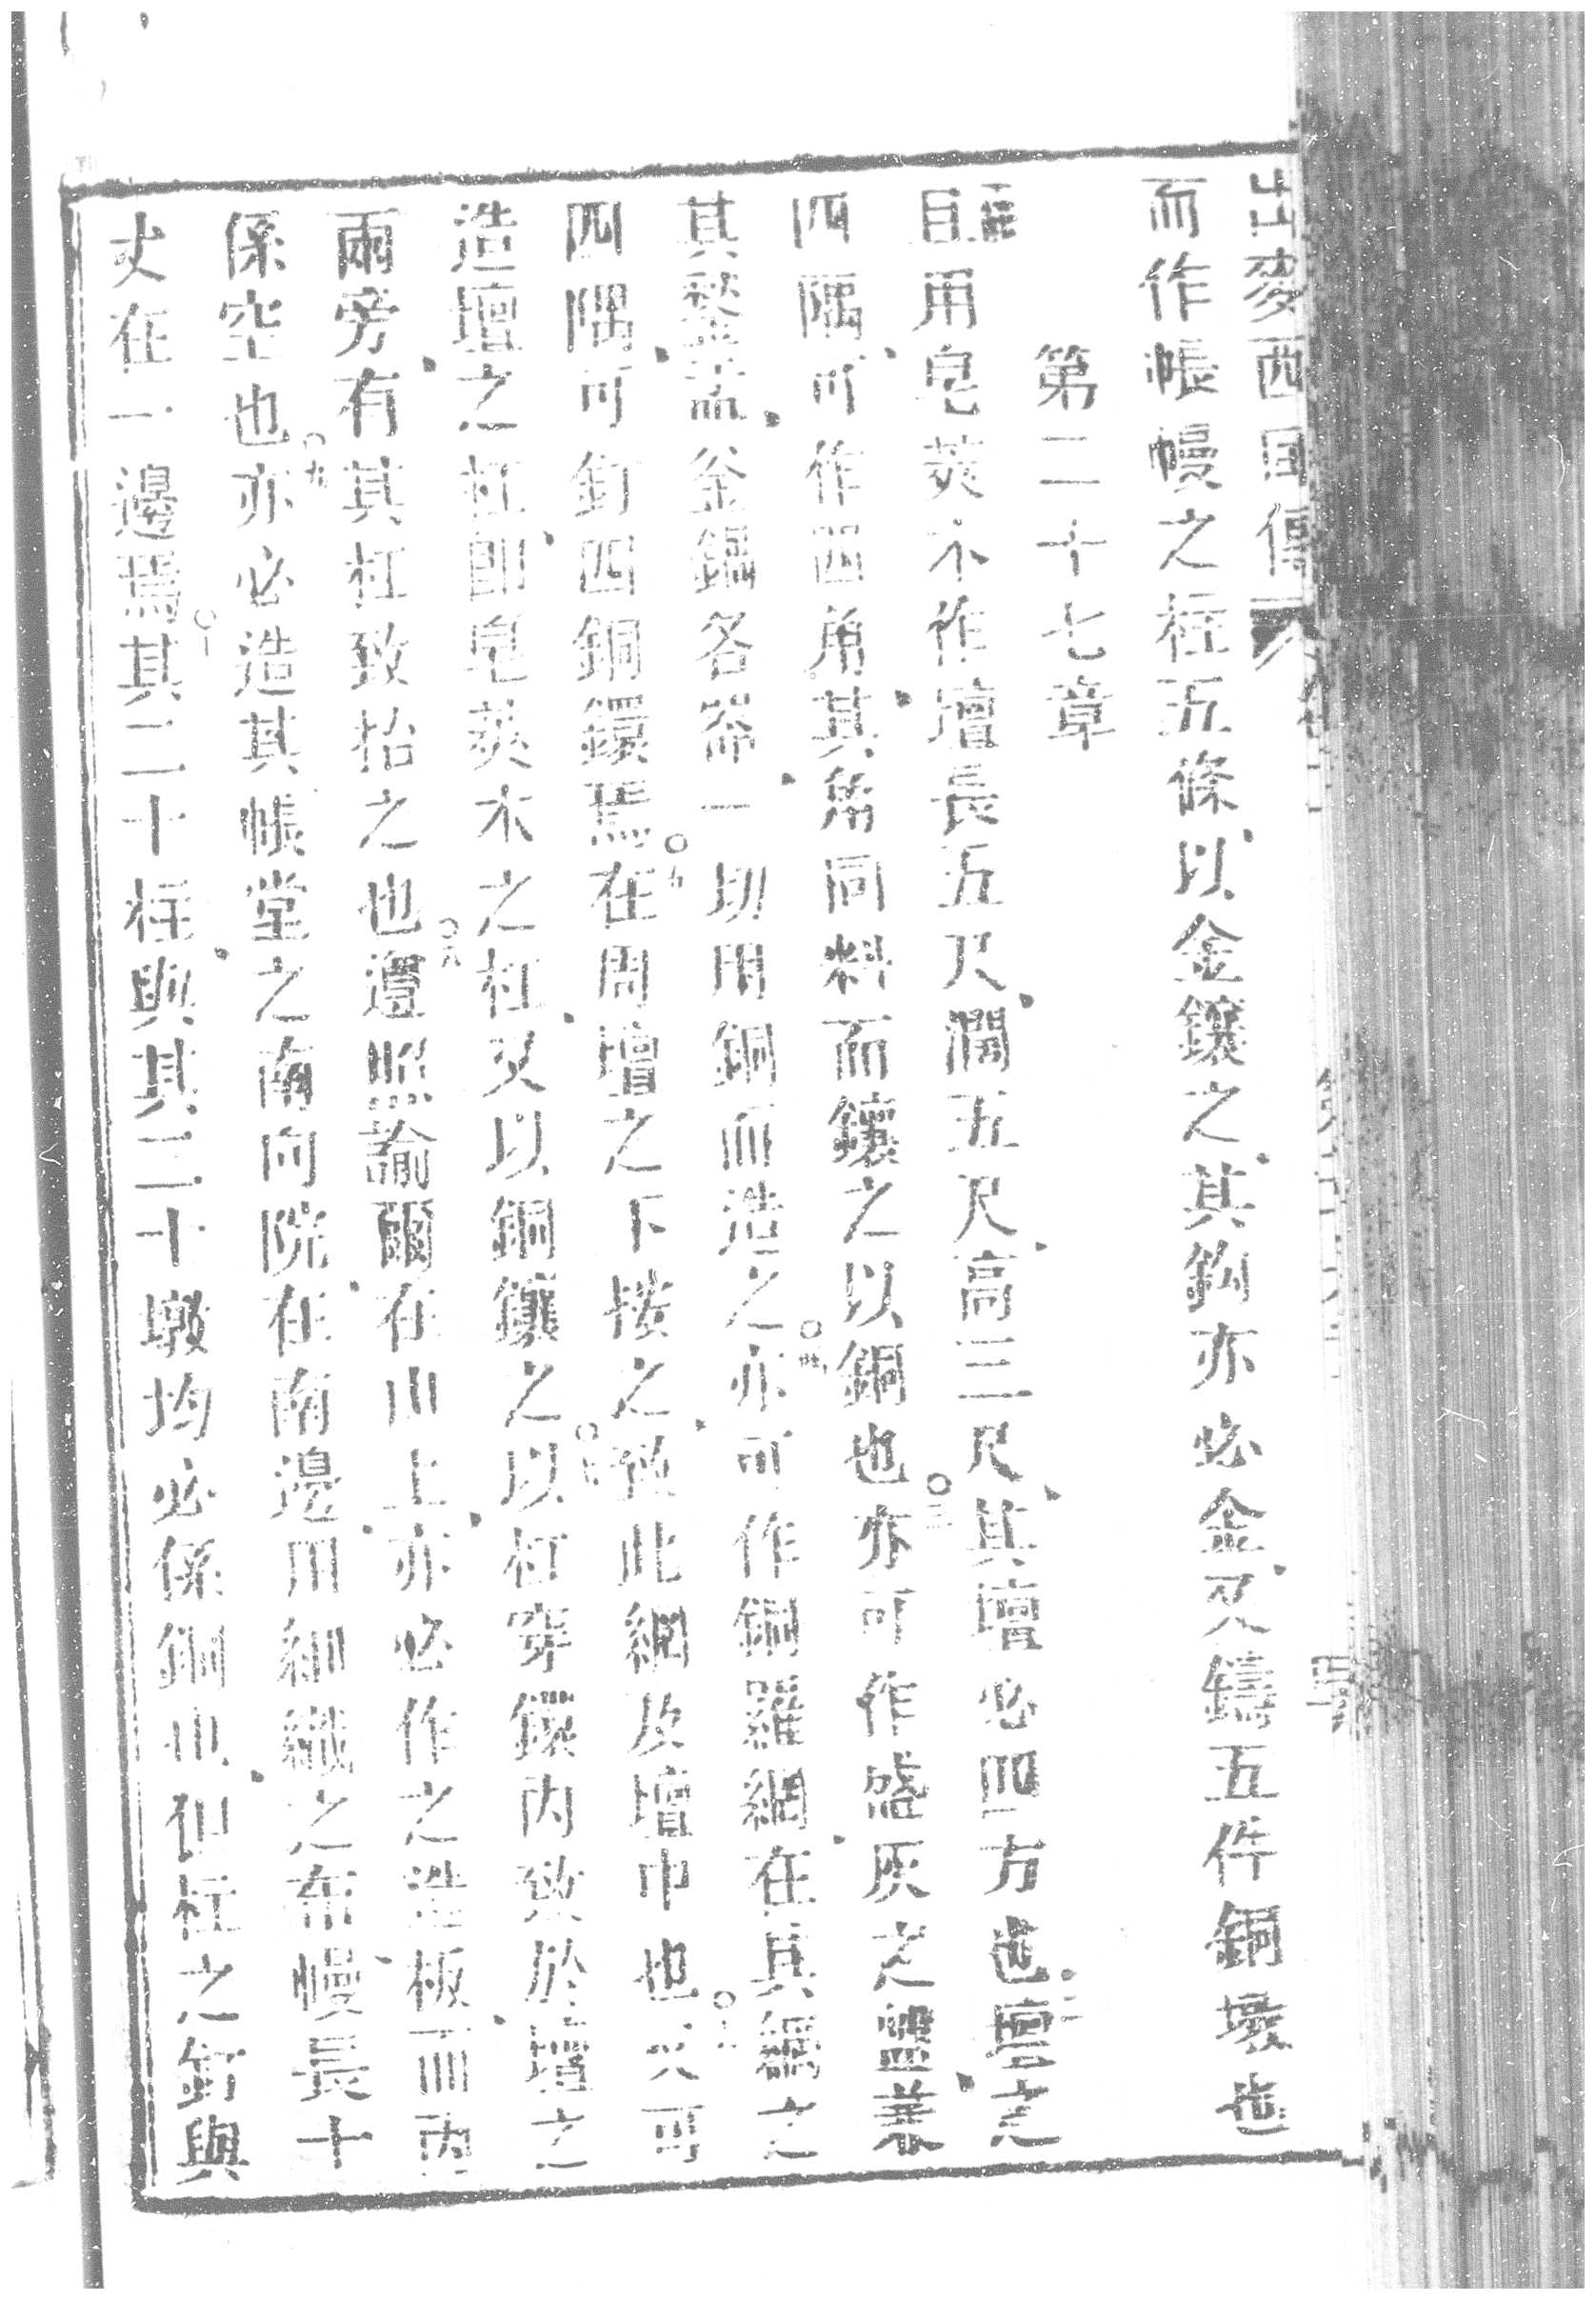 出麥西國傳
而作帳幔之柱五條以金鑲之其鈎亦必金又鑄五件銅墩也
第二十七章
且用皂莢木作壇長五尺濶五尺高三尺其壇必四方也○二壇之
四隅可作四角其角同料而鑲之以銅也○三亦可作盛灰之盤裳
其盤盂釜鍋各器一切用銅而造之○四亦可作銅羅網在其網之
四隅可釘四銅鐶焉○五在周壇之下接之致此網及壇中也○六又可
造壇之杠卽皂莢木之杠又以銅鑲之○七以杠穿鐶內致於壇之
兩旁有其杠致抬之也○八遵照諭爾在山上亦必作之造板而內
係空也○九亦必造其帳堂之南向院在南邊用細織之布幔長十
丈在一邊焉○十其二十柱與其二十墩均必係銅也但柱之鈎與